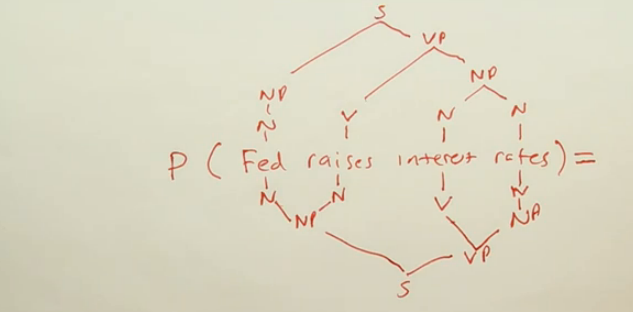 S
VP
NP NP
N V N N
P ( Fed raises interest rates ) =
N N V N
NP NP
VP
S